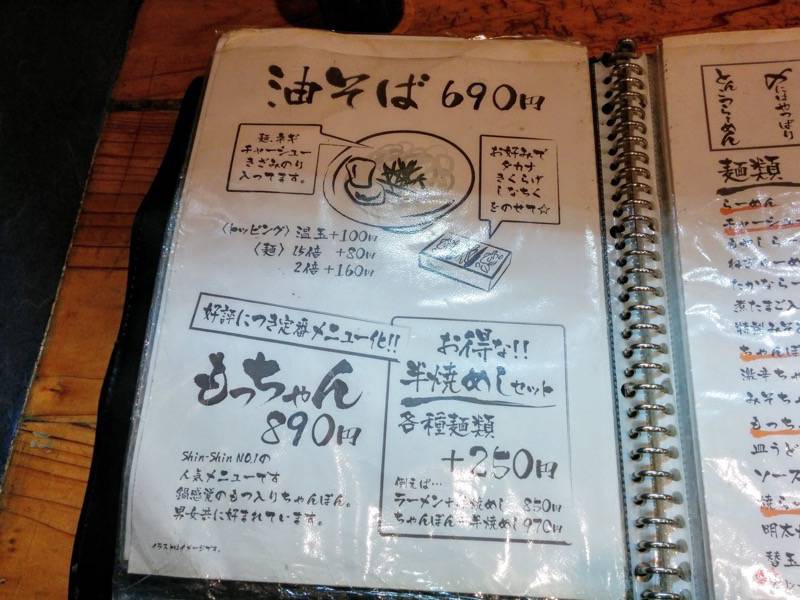 油そば 690円
麺、ネギ
チャーシュー
きざみのり
入ってます。
お好みで
タカナ
きくらげ
しなちく
をのせて☆
〈トッピング〉温玉+100円
〈麺〉1.5倍 +80円
2倍 +160円
好評につき定番メニュー化!!
もっちゃん
890円
Shin-Shin NO.1の
人気メニューです
鍋感覚のもつ入りちゃんぽん。
男女共に好まれています。
イラストはイメージです。
お得な!!
半焼めしセット
各種麺類
+250円
例えば…
ラーメン+半焼めし 850円
ちゃんぽん+半焼めし 970円
〆にはやっぱり
とんこつらーめん
麺類
らーめん
チャーシュー
もやしらー
ねぎらーめ
たかならー
煮たまご入
特製みそ
ちゃんぽ
激辛ちゃ
みそちゃ
もっちゃ
皿うど
ソース
焼らー
明太
替玉